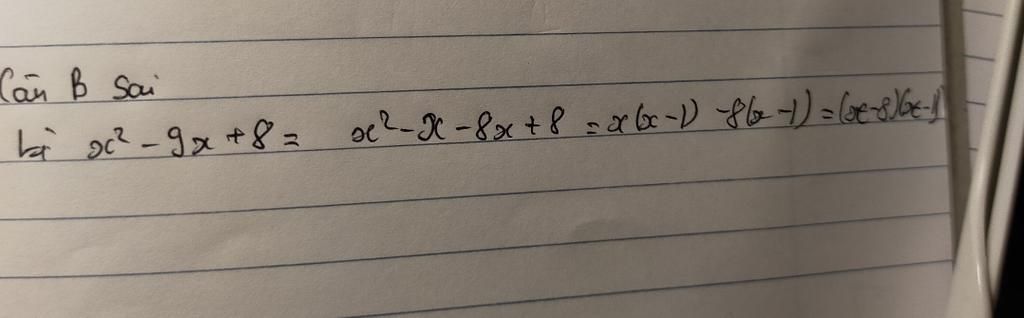 Cân B Sai
Vì x² - 9x + 8 = x² - x - 8x + 8 = x(x-1) - 8(x-1) = (x-8)(x-1)